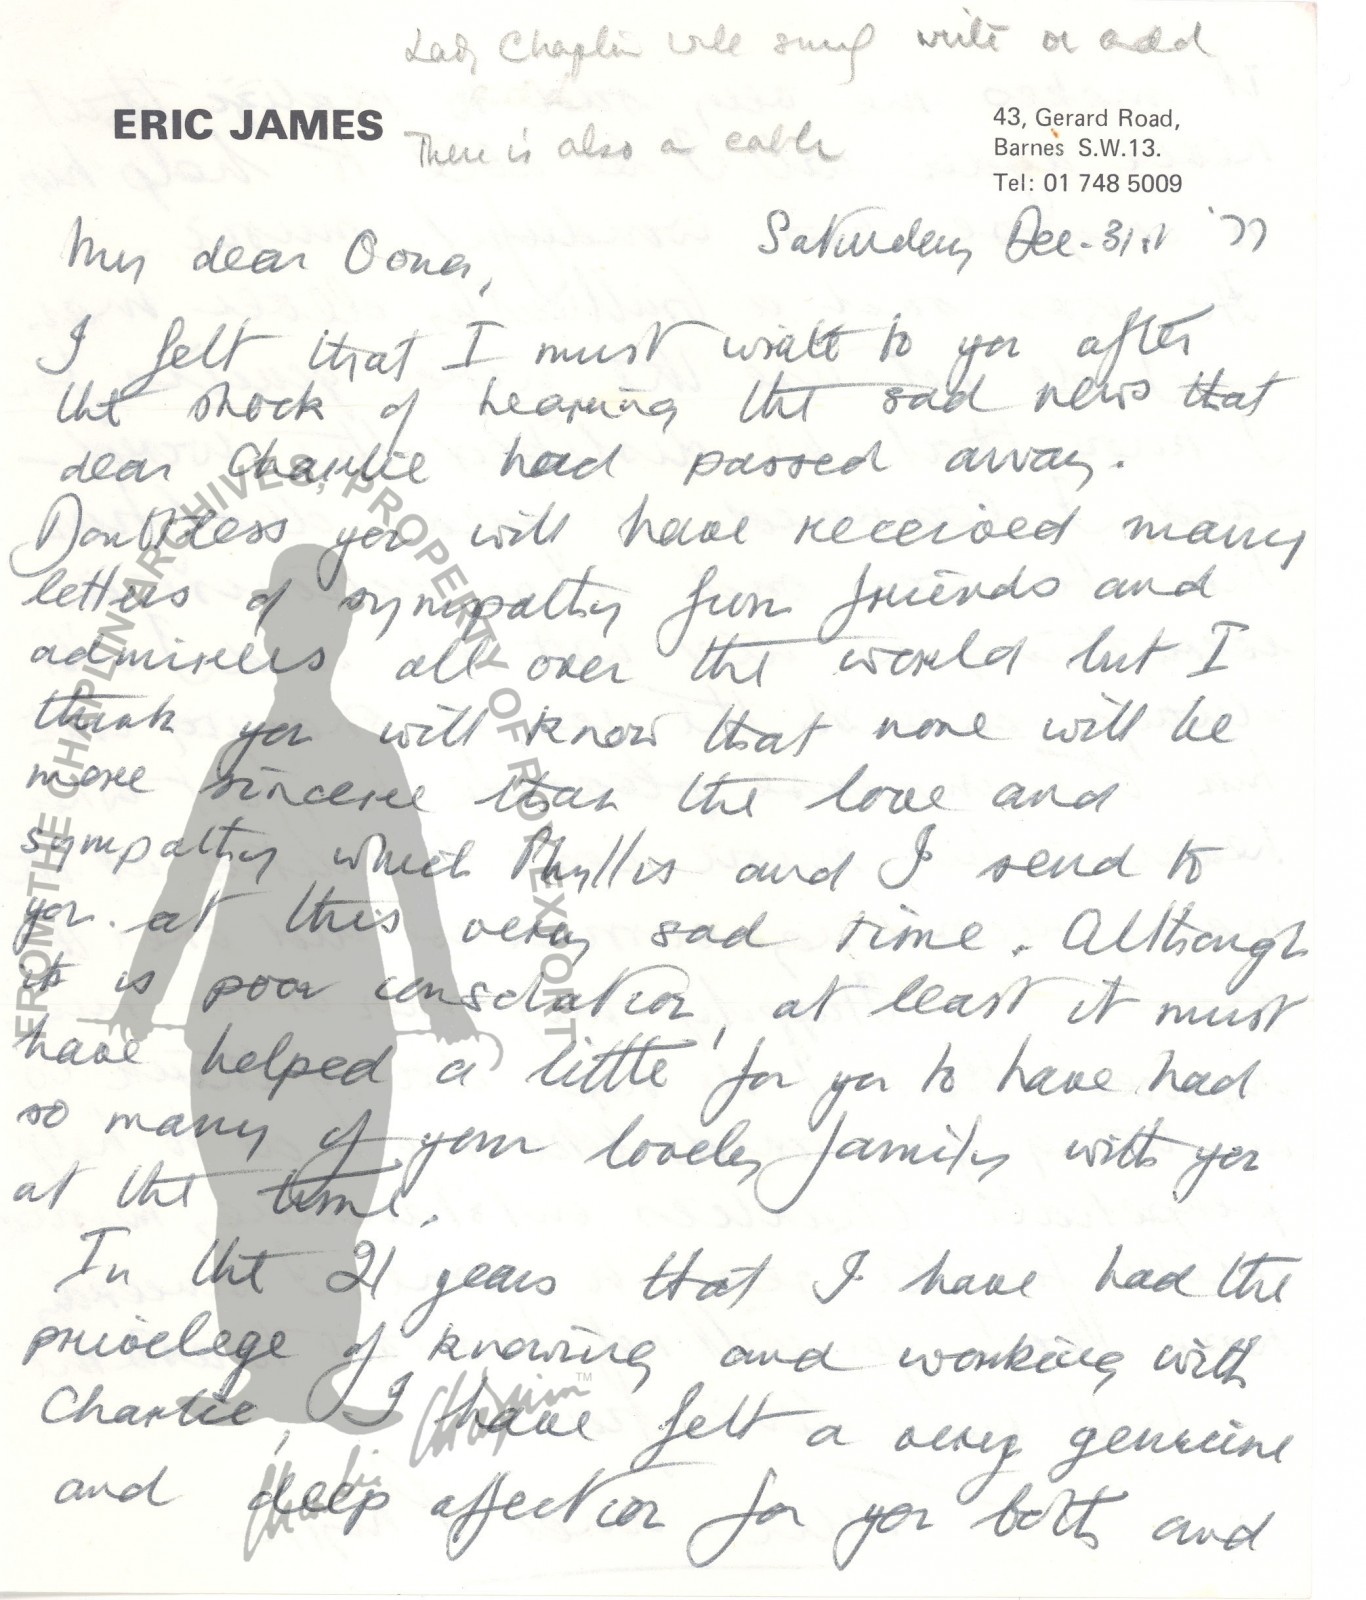 Lady Chaplin will surely write or add
There is also a cable
ERIC JAMES
43, Gerard Road,
Barnes S.W.13.
Tel: 01 748 5009
Saturday Dec. 31st '77
My dear Oona,
I felt that I must write to you after
the shock of hearing the sad news that
dear Charlie had passed away.
Doubtless you will have received many
letters of sympathy from friends and
admirers all over the world but I
think you will know that none will be
more sincere than the love and
sympathy which Phyllis and I send to
you at this very sad time. Although
it is poor consolation, at least it must
have helped a little for you to have had
so many of your lovely family with you
at the time.
In the 21 years that I have had the
privelege of knowing and working with
Charlie, I have felt a very genuine
and deep affection for you both and
FROM THE CHAPLIN ARCHIVES, PROPERTY OF ROY EXPORT
Charlie Chaplin™